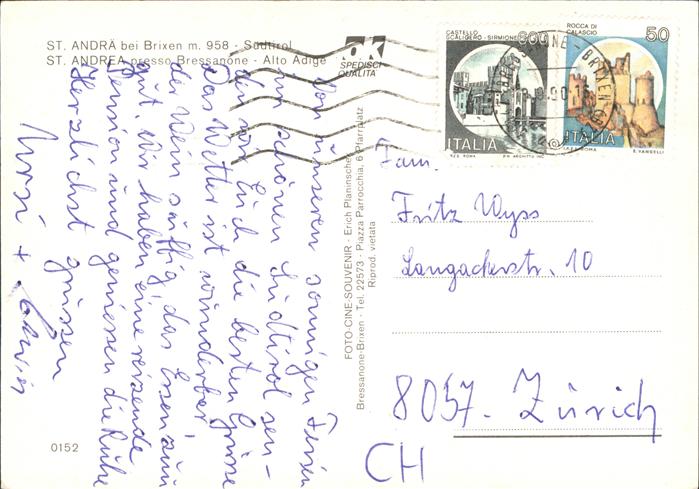 ST. ANDRÄ bei Brixen m. 958 - Südtirol
ST. ANDREA presso Bressanone - Alto Adige
SPEDISCI
QUALITÀ
CASTELLO
SCALIGERO - SIRMIONE
600
ITALIA
ROCCA DI
CALASCIO
50
ITALIA
I.P.Z.S. ROMA
E. VANGELLI
BRIXEN
Von unseren sonnigen Ferien
im schönen Südtirol sen-
den wir Euch die besten Grüsse
Das Wetter ist wunderbar,
der Wein süffig, das Essen zum
gut. Wir haben eine reizende
Pension und geniessen die Ruhe
Herzlichst grüssen
+
FOTO-CINE-SOUVENIR - Erich Planinschek
Bressanone-Brixen - Tel. 22573 - Piazza Parrocchia, 6 Pfarrplatz
Riprod. vietata
Fam.
Fritz Wyss
Langackerstr. 10
8057. Zürich
CH
0152